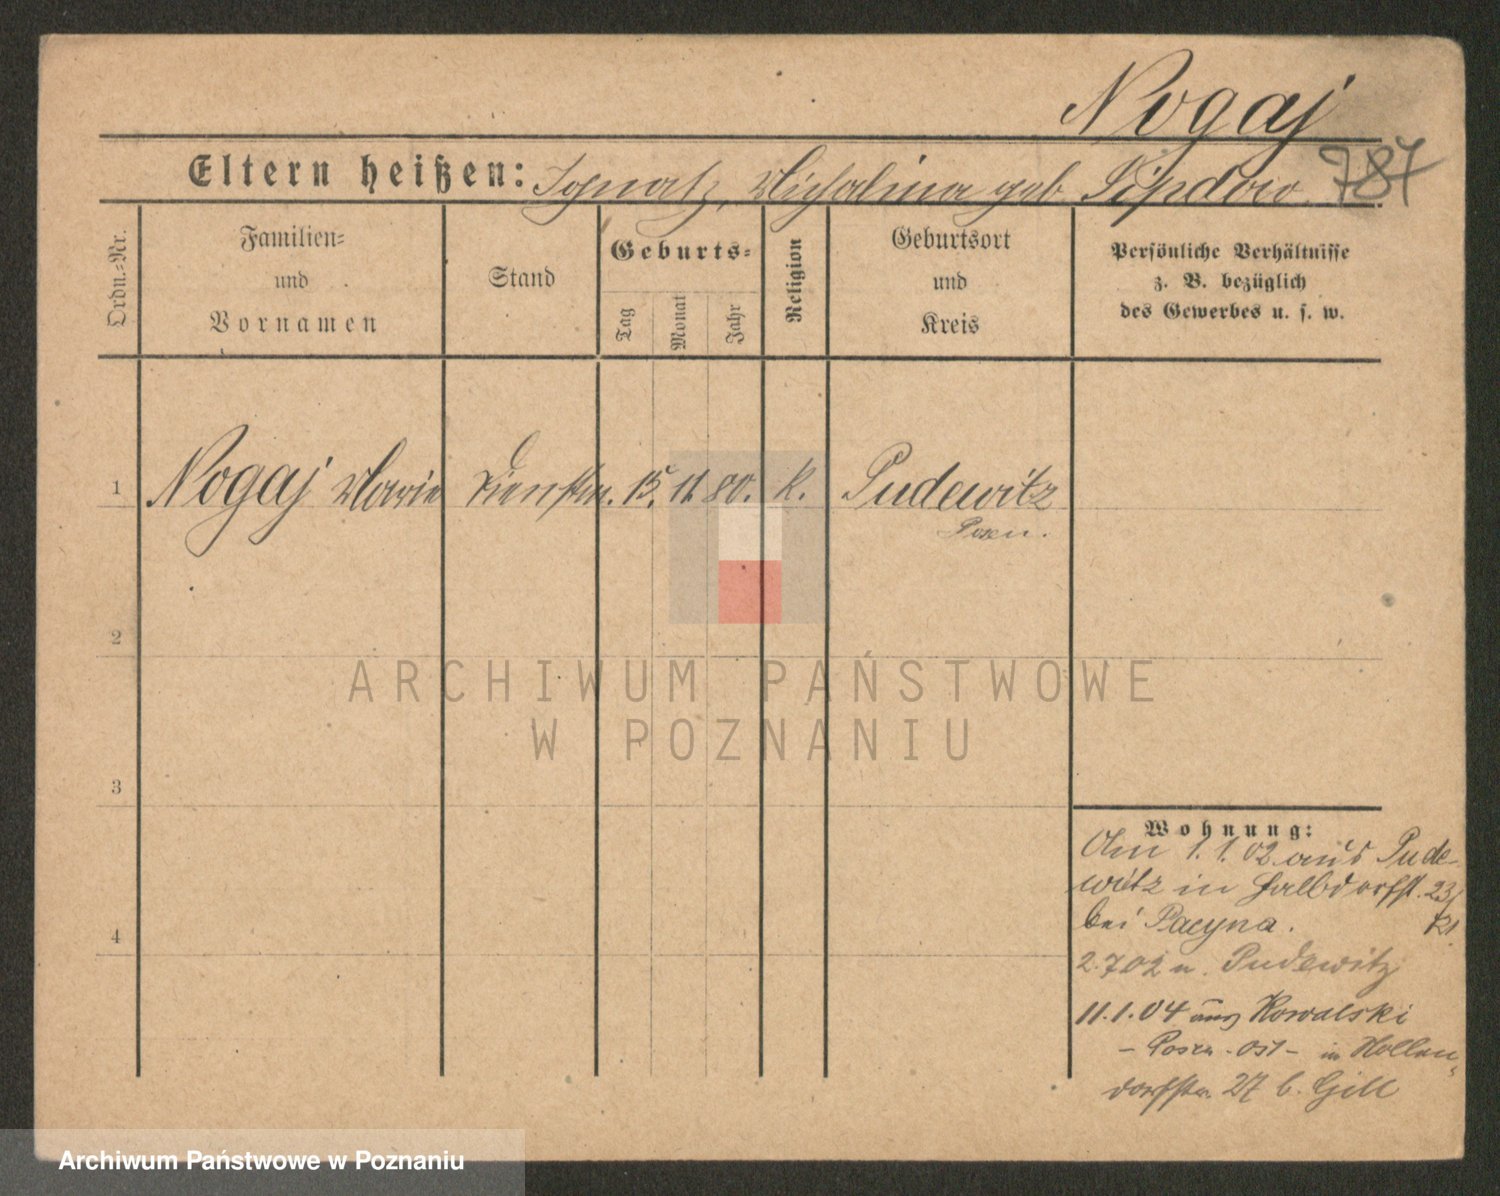 Nogaj
787
Eltern heißen: Ignatz, Michalina geb.
Ordn.-Nr.
Familien-
und
Vornamen
Stand
Geburts-
Tag
Monat
Jahr
Religion
Geburtsort
und
Kreis
Persönliche Verhältnisse
z. B. bezüglich
des Gewerbes u. s. w.
1 Nogaj Marie Dienstm. 15. 11. 80. K. Pudewitz
Posen.
2
3
4
ARCHIWUM PAŃSTWOWE
W POZNANIU
Wohnung:
Am 1. 1. 02 aus Pude-
witz in Halbdorfst. 23/
bei Pacyna.
2.7 02 n. Pudewitz
11.1.04 aus Kowalski
- Posen. Ost - in Hollen
dorfstr. 27 b. Gill
Archiwum Państwowe w Poznaniu